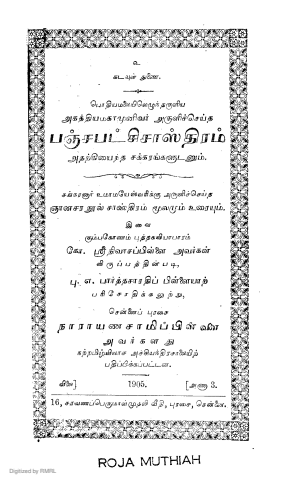 உ
கடவுள் துணை.
பொதியமலையிலெழுந்தருளிய
அகத்தியமகாமுனிவர் அருளிச்செய்த
பஞ்சபட்சிசாஸ்திரம்
அதற்கியைந்த சக்கரங்களுடனும்.
சங்கரனார் உமாமகேஸ்வரிக்கு அருளிச்செய்த
ஞானசரநூல் சாஸ்திரம் மூலமும் உரையும்.
இவை
கும்பகோணம் புத்தகவியாபாரம்
கோ. ஸ்ரீநிவாசப்பிள்ளை அவர்கள்
விருப்பத்தின்படி,
பு. எ. பார்த்தசாரதிப் பிள்ளையாற்
பரிசோதிக்கலுற்று,
சென்னைப் புரசை
நாராயணசாமிப்பிள்ளை
அவர்களது
கற்றமிழ்விலாச அச்சியந்திரசாலையிற்
பதிப்பிக்கப்பட்டன.
விலை] 1905. [அணா 3.
16, சரவணப்பெருமாள்முதலி வீதி, புரசை, சென்னை.
Digitized by RMRL
ROJA MUTHIAH